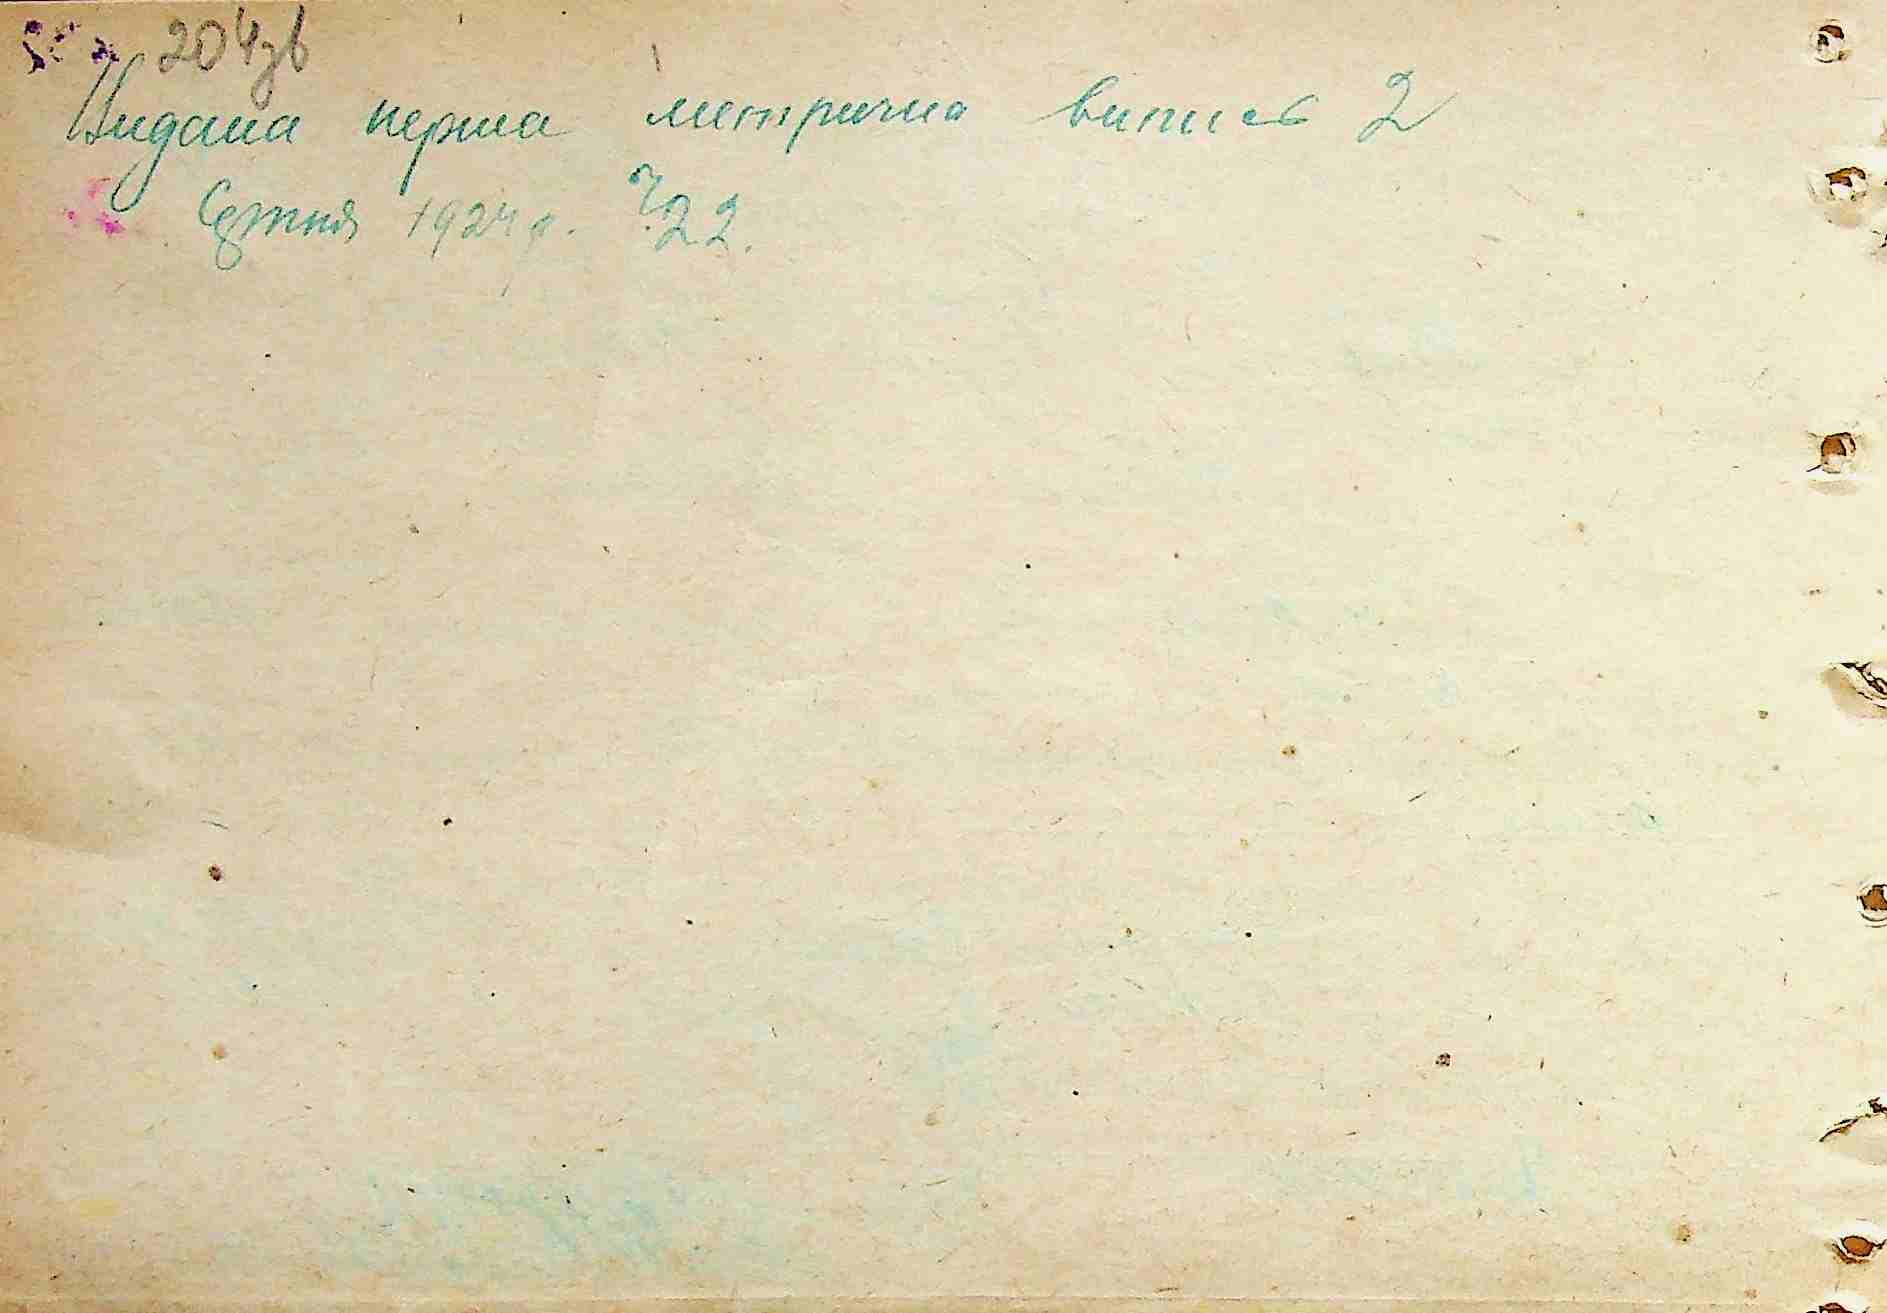 204зв
Видана перша метрична випись 2
Серпня 1924 р. Ч. 22.